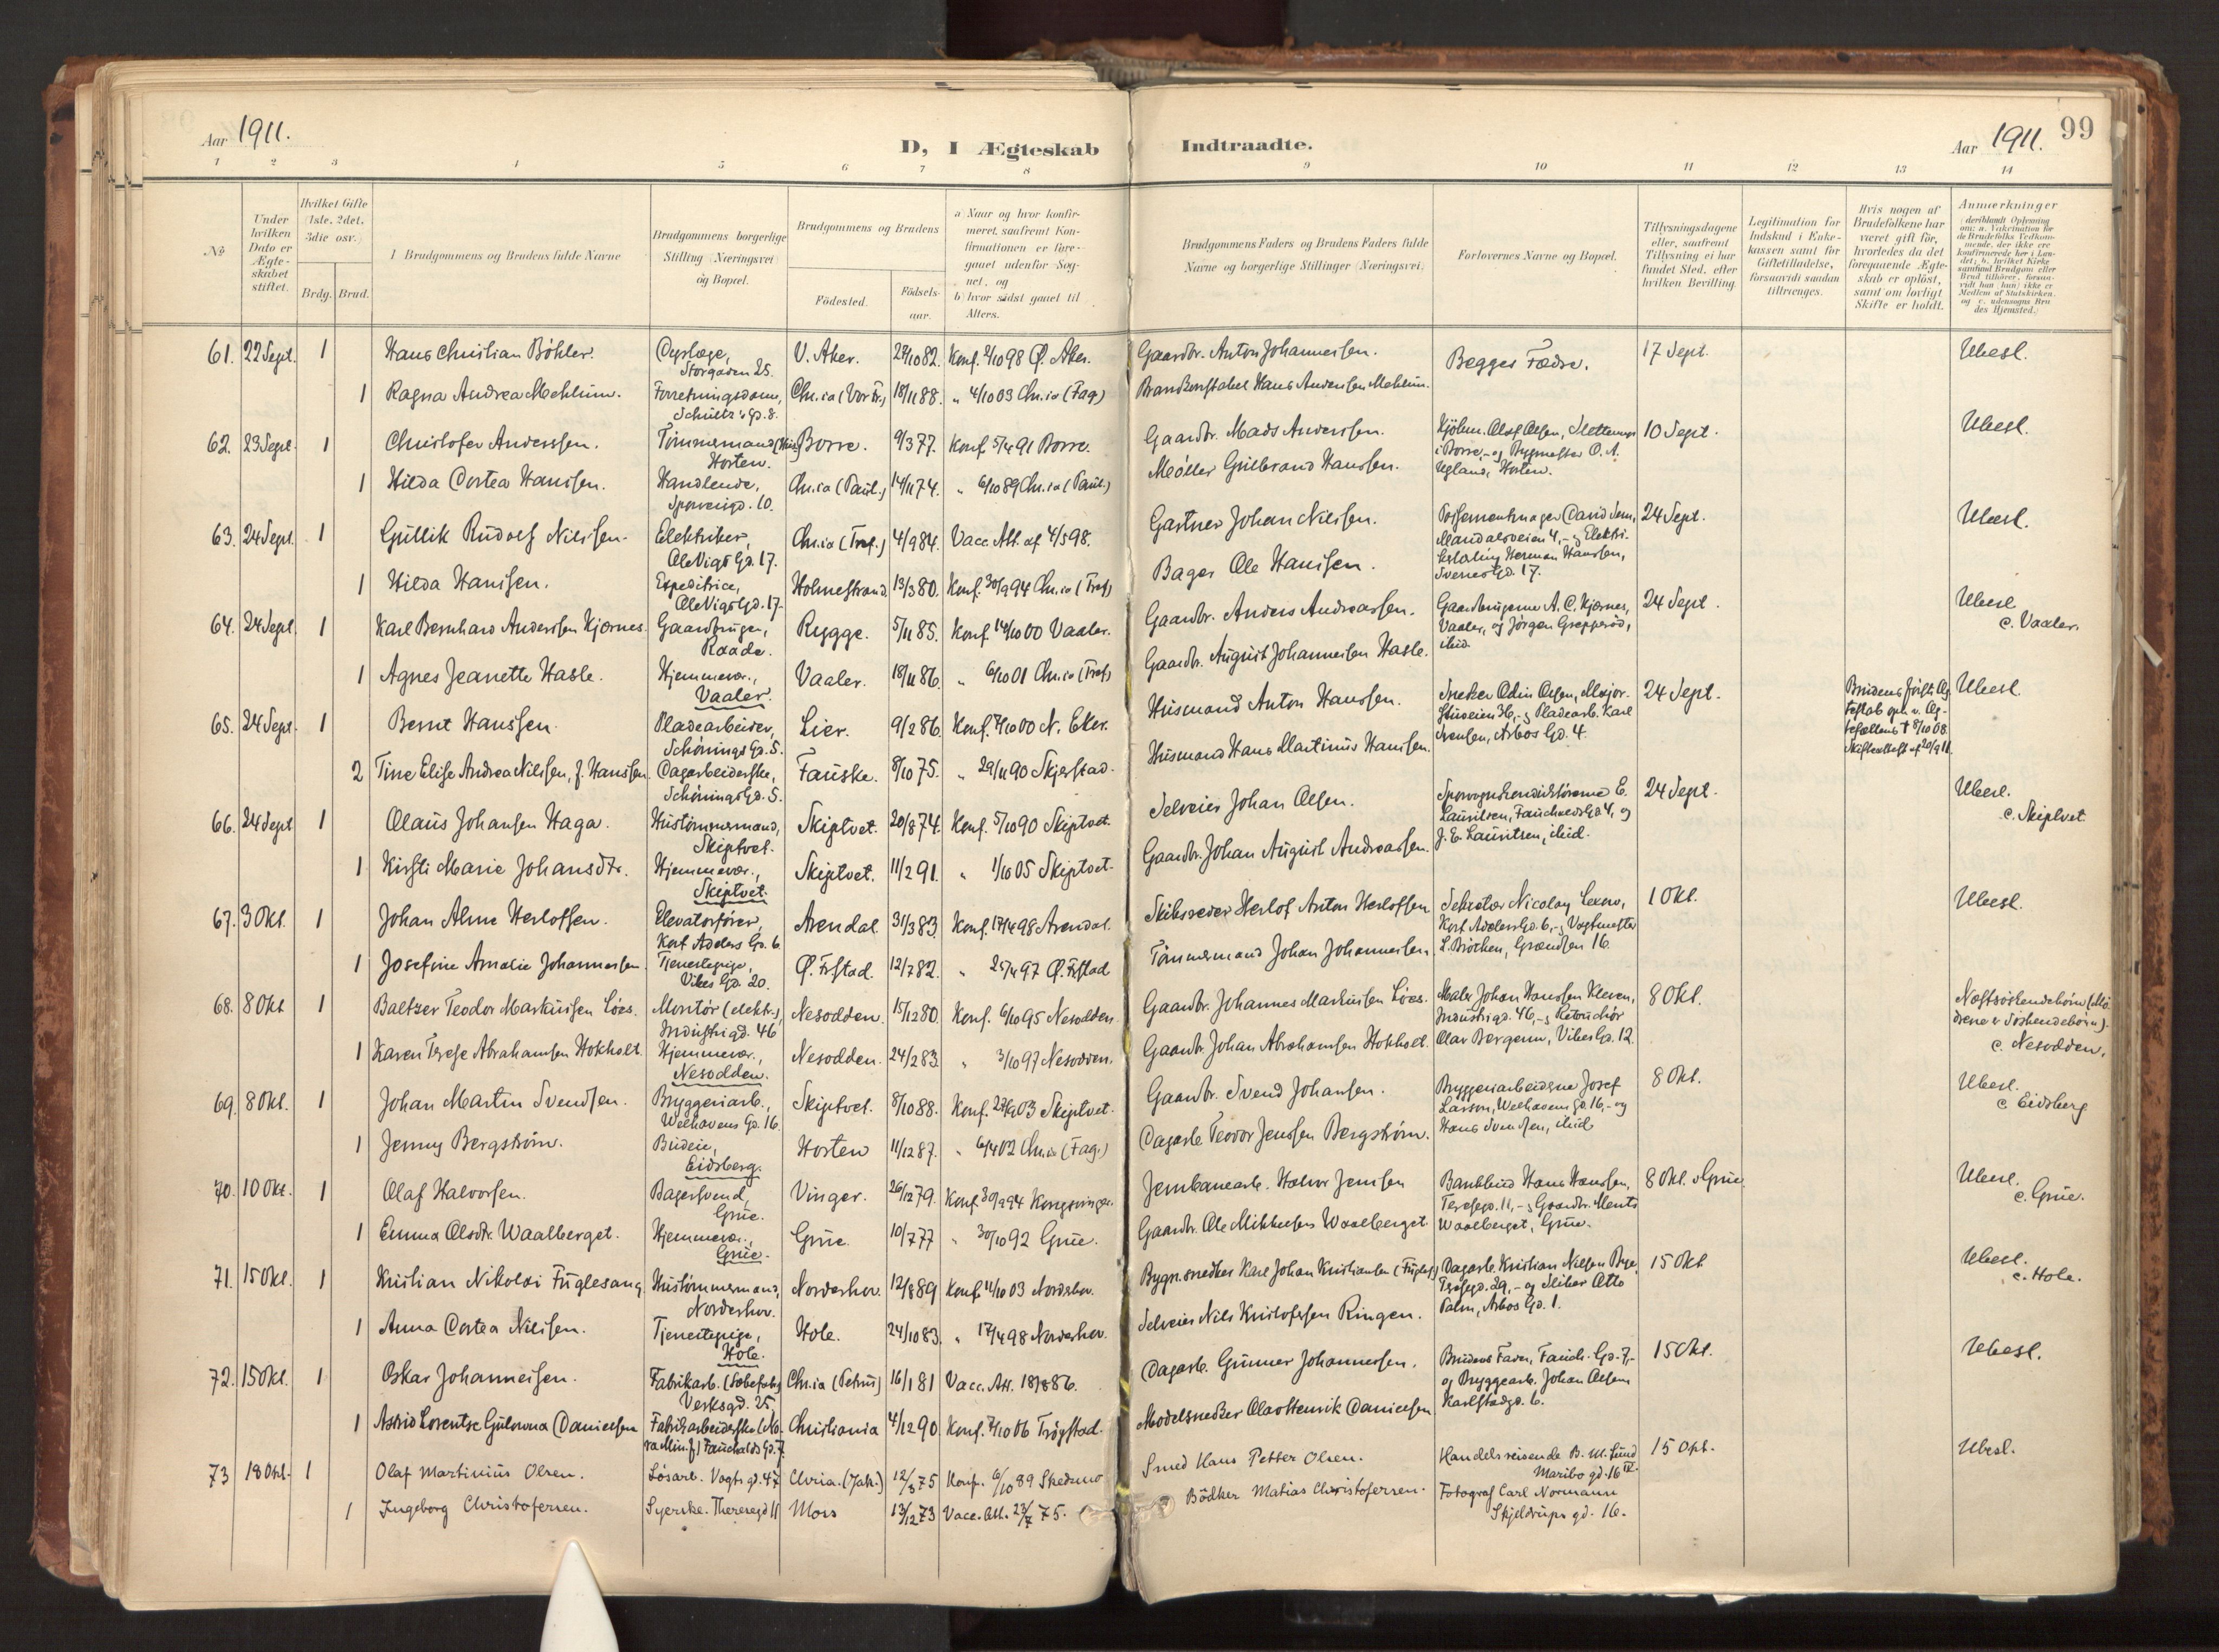 Aar 1911.
D, I Ægteskab Indtraadte.
Aar 1911. 99
1 2 3 4 5 6 7 8 9 10 11 12 13 14
No
Under hvilken Dato er Ægteskabet stiftet.
Hvilket Gifte (1ste, 2det, 3die osv.)
Brdg. Brud.
Brudgommens og Brudens fulde Navne
Brudgommens borgerlige Stilling (Næringsvei) og Bopæl.
Brudgommens og Brudens
Födested. Födselsaar.
a) Naar og hvor konfirmeret, saafremt Konfirmationen er foregaaet udenfor Sognet, og
b) hvor sidst gaaet til Alters.
Brudgommens Faders og Brudens Faders fulde Navne og borgerlige Stillinger (Næringsvei)
Forlovernes Navne og Bopæl.
Tillysningsdagene eller, saafremt Tillysning ei har fundet Sted, efter hvilken Bevilling.
Legitimation for Indskud i Enkekassen samt for Giftetilladelse, forsaavidt saadan tiltrænges.
Hvis nogen af Brudefolkene har været gift för, hvorledes da det foregaaende Ægteskab er oplöst, samt om lovligt Skifte er holdt.
Anmærkninger
61. 22 Sept. 1 Hans Christian Böhler. Dyrlæge, Storgaden 25. V. Aker. 82. Konf. 2/10 98 Ø. Aker. Gaardbr. Anton Johannessen. Begges Fædre. 17 Sept. Ubesl.
1 Ragna Andrea Mehlum. Forretningsdame, Schultz's Gd. 8. Chr.ia (Vor Fr.) 18/11 88. " 4/10 03 Chr.ia (Fag.) Brandkonstabel Hans Andersen Mehlum.
62. 23 Sept. 1 Christofer Anderssen. Tømmermand Horten. Borre. 9/3 77. Konf. 5/4 91 Borre. Gaardbr. Mads Anderssen. Kjöbm. Olaf Olsen, i Borre, og Bygmester O. A. Ugland, Horten. 10 Sept. Ubesl.
1 Hilda Dortea Hanssen. Handlende, Sporveisgd. 10. Chr.ia (Paul.) 14/11 74. " 6/10 89 Chr.ia (Paul.) Møller Gulbrand Hanssen.
63. 24 Sept. 1 Gullik Rudolf Nilssen. Elektriker, Ole Vigs Gd. 17. Chr.ia (Tref.) 4/9 84. Vacc. Att. af 4/5 98. Gartner Johan Nilssen. David Mandalsveien 4, og Herman Hanssen, Sverres Gd. 17. 24 Sept. Ubesl.
1 Hilda Hanssen. Expeditrice, Ole Vigs Gd. 17. Holmestrand. 13/3 80. Konf. 30/9 94 Chr.ia (Tref.) Bager Ole Hanssen.
64. 24 Sept. 1 Karl Bernhard Anderssen Kjærnes. Gaardbruger, Raade. Rygge. 5/11 85. Konf. 14/10 00 Vaaler. Gaardbr. Anders Andreassen. Gaardbrugerne A. C. Kjærnes, Vaaler, og Jörgen Grepperød, ibid. 24 Sept. Ubesl. c. Vaaler.
1 Agnes Jeanette Hasle. Hjemmevær., Vaaler. Vaaler. 18/11 86. " 6/10 01 Chr.ia (Tref.) Gaardbr. August Johannessen Hasle.
65. 24 Sept. 1 Bernt Hanssen. Pladearbeider, Schönings Gd. 5. Lier. 9/2 86. Konf. 7/10 00 N. Eker. Husmand Anton Hanssen. Snekker Odin Olsen, Major-stuveien 36, og Pladearb. Karl Svensen, Arbos Gd. 4. 24 Sept. Ubesl.
2 Tine Elise Andrea Nilssen, f. Hanssen. Dagarbeiderske, Schönings Gd. 5. Fauske. 8/10 75. " 29/11 90 Skjerstad. Husmand Hans Martinus Hanssen.
66. 24 Sept. 1 Olaus Johansen Haga. Hustömmermand, Skiptvet. Skiptvet. 20/8 74. Konf. 5/10 90 Skiptvet. Selveier Johan Olsen. Sporvognskonduktörerne E. Lauritsen, Fauchalds Gd. 4, og J. E. Lauritsen, ibid. 24 Sept. Ubesl. c. Skiptvet.
1 Kirsti Marie Johansdtr. Hjemmevær., Skiptvet. Skiptvet. 11/2 91. " 1/10 05 Skiptvet. Gaardbr. Johan August Andreassen.
67. 3 Okt. 1 Johan Alme Herlofsen. Elevatorfører, Kort Adelers Gd. 6. Arendal. 31/3 83. Konf. 17/4 98 Arendal. Skibsreder Herlof Anton Herlofsen. Sekretær Nicolay Kort Adelers Gd. 6, og Vagtmester Grændsen 16. 1 Okt. Ubesl.
1 Josefine Amalie Johannessen. Tjenestepige, Vibes Gd. 20. Ø. Frstad. 12/7 82. " 25/4 97 Ø. Frstad Tömmermand Johan Johannessen.
68. 8 Okt. 1 Baltzer Teodor Markussen Løes. Montör (elektr.), Industrigd. 46 Nesodden. 15/12 80. Konf. 6/10 95 Nesodden. Gaardbr. Johannes Markussen Løes. Maler Johan Hanssen Kleven, Industrigd. 46, og Retouchör Olav Bergem, Vibes Gd. 12. 8 Okt. Næstsöskendebörn (Mödrene er Söskendebörn). c. Nesodden.
1 Karen Terese Abrahamsen Hokholt. Hjemmevær., Nesodden. Nesodden. 24/2 83. " 3/10 97 Nesodden. Gaardbr. Johan Abrahamsen Hokholt.
69. 8 Okt. 1 Johan Martin Svendsen. Bryggeriarb., Welhavens Gd. 16. Skiptvet. 8/10 88. Konf. 27/9 03 Skiptvet. Gaardbr. Svend Johansen. Bryggeriarbeiderne Josef Larson, Welhavens Gd. 16, og Hans Svendsen, ibid. 8 Okt. Ubesl. c. Eidsberg.
1 Jenny Bergström. Budeie, Eidsberg. Horten 11/12 87. " 6/4 02 Chr.ia (Fag.) Dagarb. Teodor Jenssen Bergström.
70. 10 Okt. 1 Olaf Halvorsen. Bagersvend, Grue. Vinger. 26/12 79. Konf. 30/9 94 Kongsvinger. Jernbanearb. Halvor Jenssen Bankbud Hans Hanssen, Teresegd. 11, og Gaardbr. Ments Waalberget, Grue. 8 Okt. i Grue. Ubesl. c. Grue.
1 Emma Olsdtr. Waalberget. Hjemmevær., Grue. Grue. 10/7 77 " 30/10 92 Grue. Gaardbr. Ole Mikkelsen Waalberget.
71. 15 Okt. 1 Kristian Nikolai Fuglesang Hustömmermand, Norderhov. Norderhov. 12/8 89 Konf. 11/10 03 Norderhov. Bygn.snedker Karl Johan Kristiansen (Fugles.) Dagarb. Kristian Nilsen Teresegd. 29, og Sliber Otto Palm, Arbos Gd. 1. 15 Okt. Ubesl. c. Hole.
1 Anna Dortea Nilssen. Tjenestepige, Hole. Hole. 24/10 83. " 17/4 98 Norderhov. Selveier Nils Kristofersen Ringen.
72. 15 Okt. 1 Oskar Johannessen. Fabrikarb. (Sæbefabr.) Verksgd. 25. Chr.ia (Petrus) 16/1 81 Vacc. Att. 18/8 86. Dagarb. Gunner Johannessen. Brudens Fader, Fauch. Gd. 7, og Bryggearb. Johan Olsen Karlstadgd. 6. 15 Okt. Ubesl.
1 Astrid Lorentse Gulovna Danielsen Fabrikarbeiderske Fauchalds Gd. 7 Christiania 4/12 90. Konf. 7/10 06 Trögstad. Modelsnedker Olaf Henrik Danielsen
73 18 Okt. 1 Olaf Martinius Olsen. Løsarb. Vogts gd. 47 Chria. (Jak.) 12/3 75 Konf. 6/10 89 Skedsmo Smed Hans Petter Olsen. Handelsreisende B. M. Lund Maribo gd. 16 IV. 15 Okt. Ubesl.
1 Ingeborg Christofersen. Syerske. Theresegd 11 Moss 13/12 73 Vacc. Att. 23/7 75. Bödker Matias Christofersen. Fotograf Carl Normann Skjeldrups gd. 16.